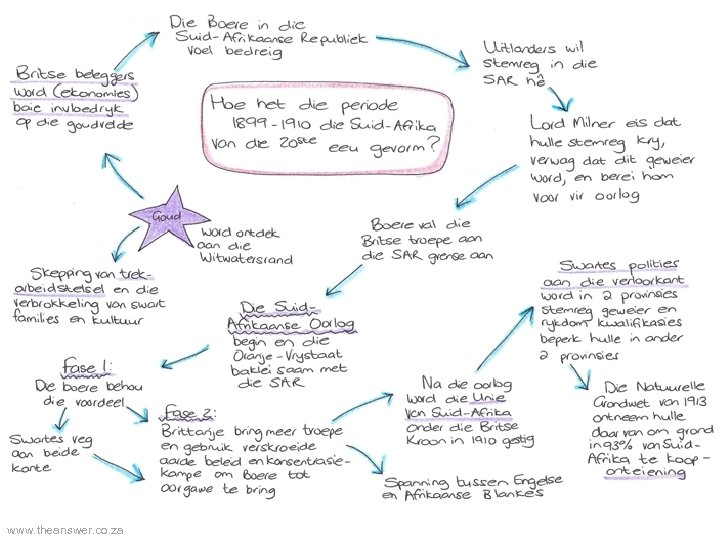 Hoe het die periode
1899-1910 die Suid-Afrika
van die 20ste eeu gevorm?
Goud
Word ontdek
aan die
Witwatersrand
Skepping van trek-
arbeidstelsel en die
verbrokkeling van swart
families en kultuur
Britse beleggers
word (ekonomies)
baie invbedryk
op die goudvelde
Die Boere in die
Suid-Afrikaanse Republiek
voel bedreig
Uitlanders wil
stemreg in die
SAR hê
Lord Milner eis dat
hulle stemreg kry,
verwag dat dit geweier
word, en berei hom
voor vir oorlog
Boere val die
Britse troepe aan
die SAR grense aan
Die Suid-
Afrikaanse Oorlog
begin en die
Oranje-Vrystaat
baklei saam met
die SAR
Fase 1:
Die boere behou
die voordeel
Swartes veg
aan beide
kante
Fase 2:
Brittanje bring meer troepe
en gebruik verskroeide
aarde beleid en konsentrasie-
kampe om Boere tot
oorgawe te bring
Na die oorlog
word die Unie
van Suid-Afrika
onder die Britse
Kroon in 1910 gestig
Spanning tussen Engelse
en Afrikaanse Blankes
Swartes polities
aan die verloorkant
word in 2 provinsies
stemreg geweier en
rykdom kwalifikasies
beperk hulle in ander
2 provinsies
Die Natuurelle
Grondwet van 1913
ontneem hulle
daarvan om grond
in 93% van Suid-
Afrika te koop -
onteiening
www.theanswer.co.za